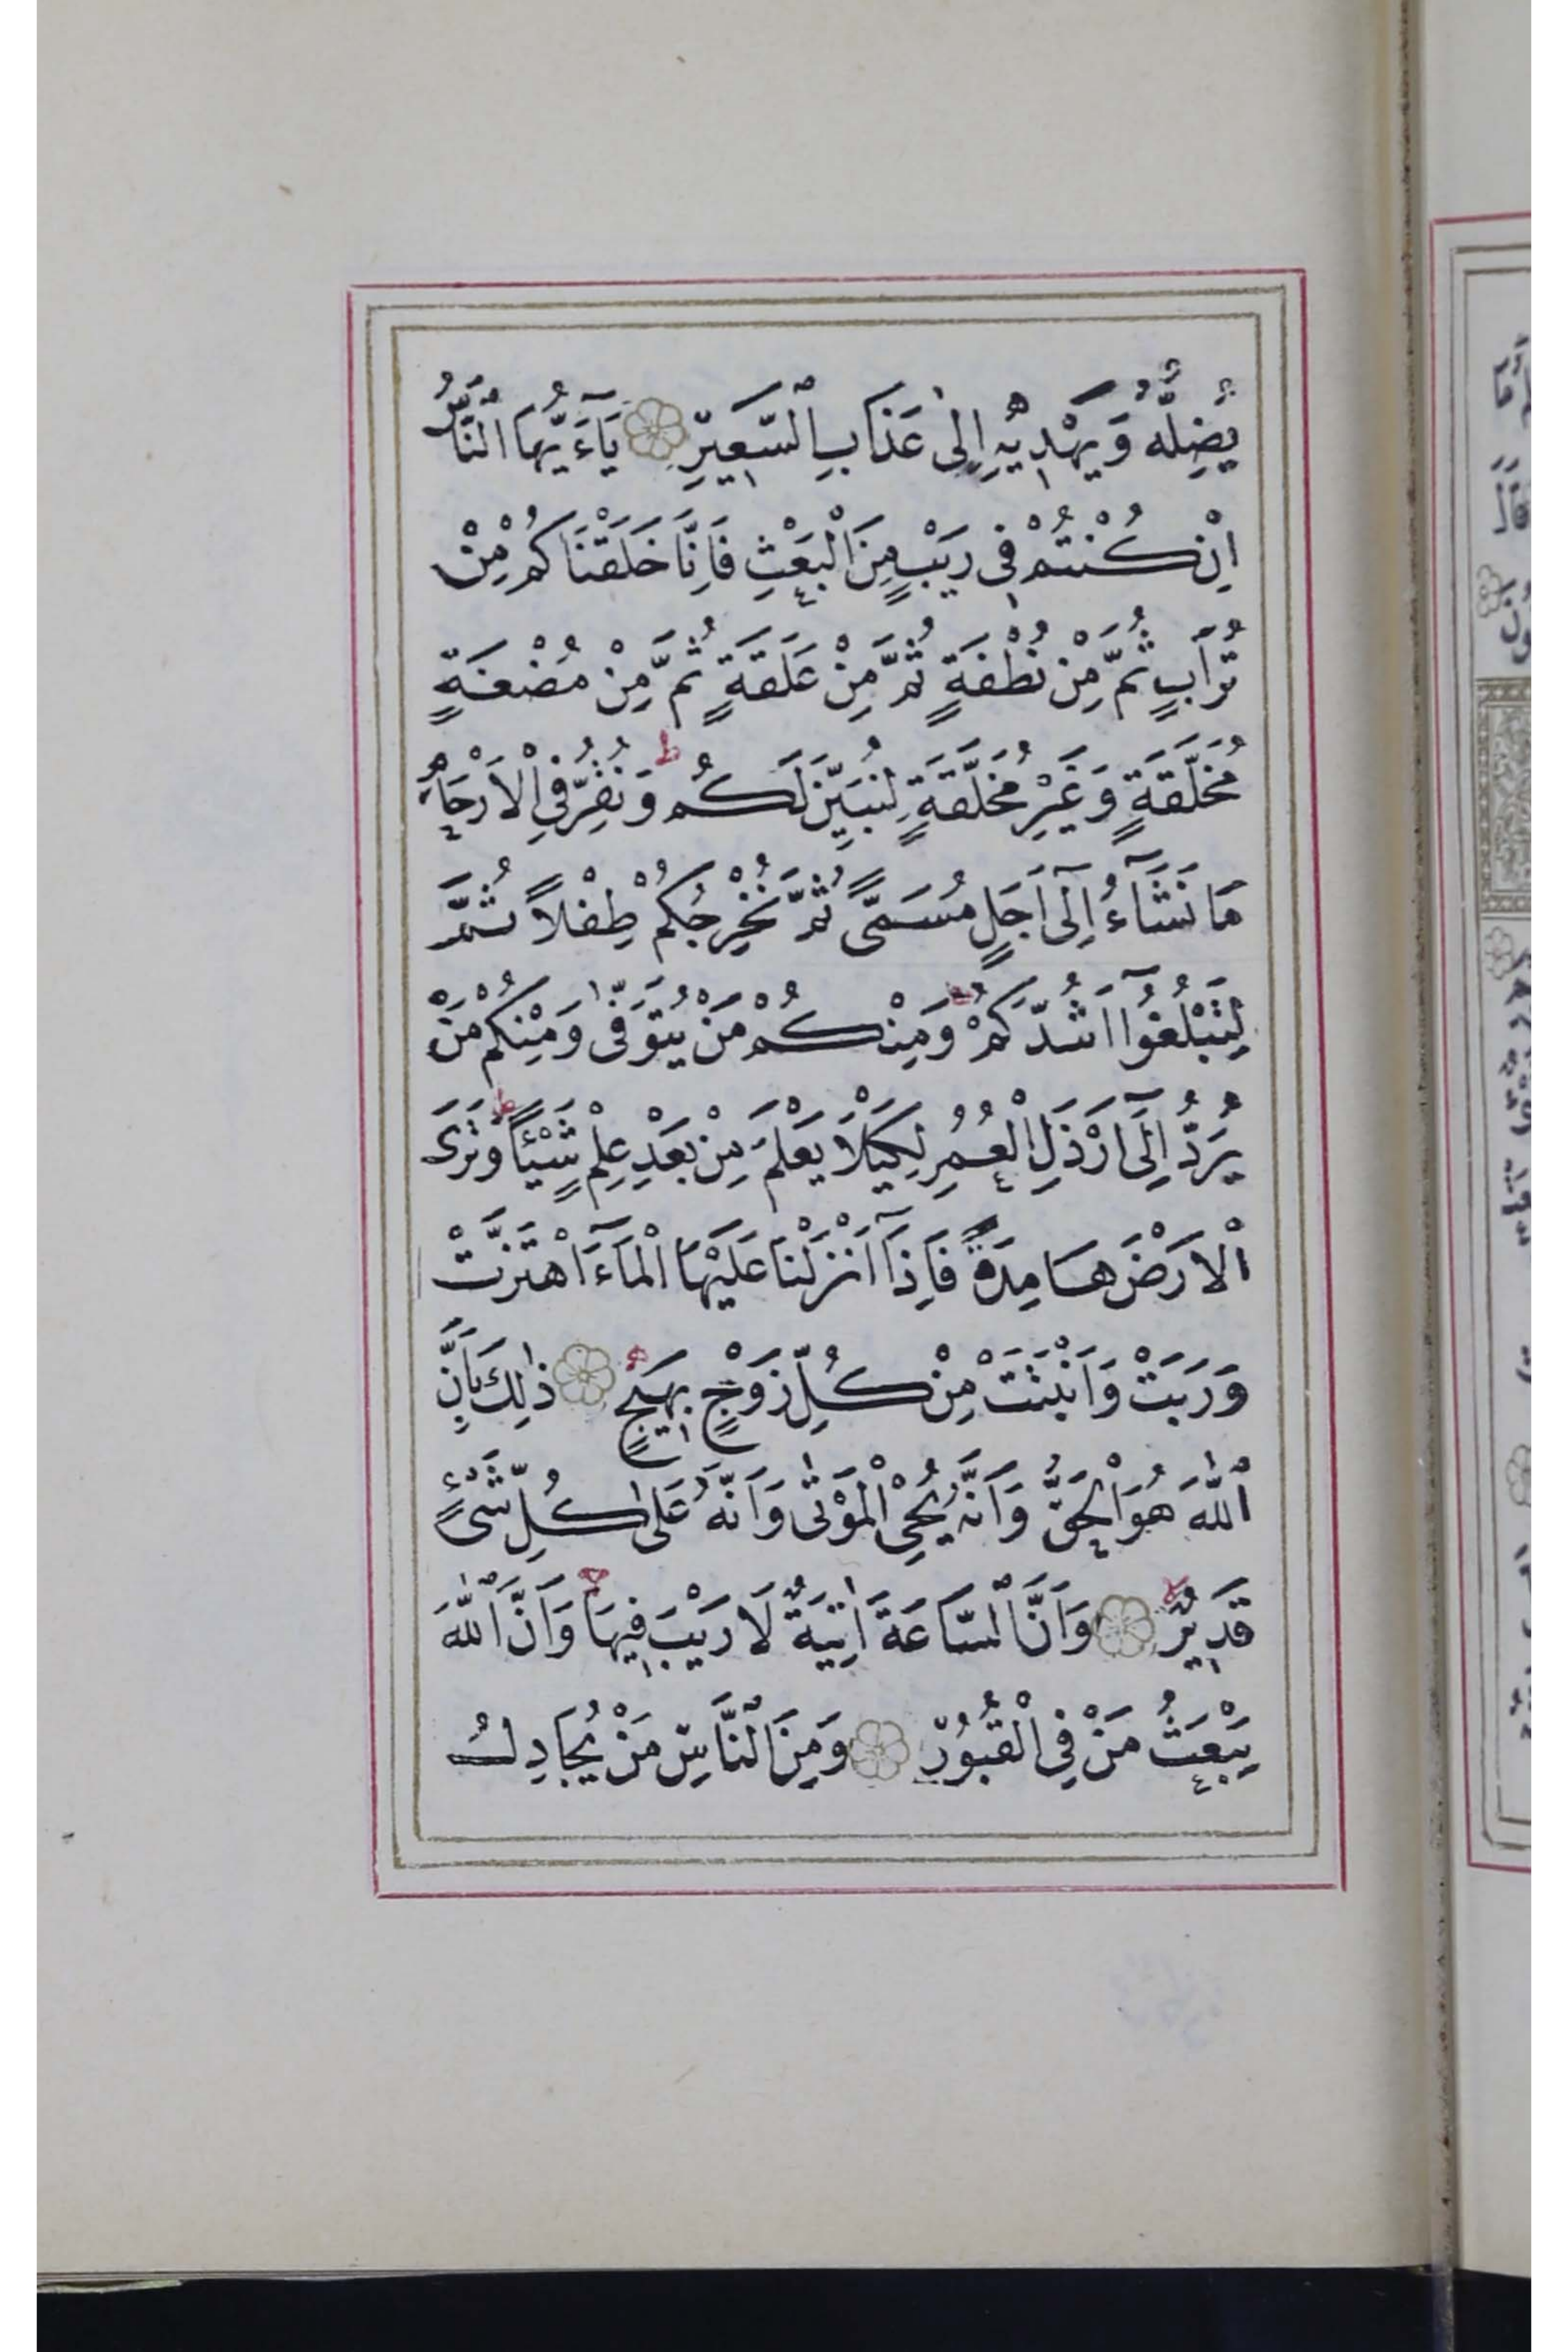 يُضِلُّهُ وَيَهْدِيهِ إِلَىٰ عَذَابِ ٱلسَّعِيرِ يَآءَيُّهَا ٱلنَّاسُ
اِنْ كُنْتُمْ فِى رَيْبٍ مِنَ الْبَعْثِ فَاِنَّا خَلَقْنَاكُمْ مِنْ
تُرَابٍ ثُمَّ مِنْ نُطْفَةٍ ثُمَّ مِنْ عَلَقَةٍ ثُمَّ مِنْ مُضْغَةٍ
مُخَلَّقَةٍ وَغَيْرِ مُخَلَّقَةٍ لِنُبَيِّنَ لَكُمْ ط وَنُقِرُّ فِى الْاَرْحَامِ
مَا نَشَآءُ اِلٰٓى اَجَلٍ مُسَمًّى ثُمَّ نُخْرِجُكُمْ طِفْلاً ثُمَّ
لِتَبْلُغُوٓا اَشُدَّكُمْ وَمِنْكُمْ مَنْ يُتَوَفّٰى وَمِنْكُمْ مَنْ
يُرَدُّ اِلٰٓى اَرْذَلِ الْعُمُرِ لِكَيْلَا يَعْلَمَ مِنْ بَعْدِ عِلْمٍ شَيْئًا ط وَتَرَى
الْاَرْضَ هَامِدَةً فَاِذَآ اَنْزَلْنَا عَلَيْهَا الْمَآءَ اهْتَزَّتْ
وَرَبَتْ وَاَنْبَتَتْ مِنْ كُلِّ زَوْجٍ بَهِيجٍ ذٰلِكَ بِاَنَّ
ٱللّٰهَ هُوَ الْحَقُّ وَاَنَّهُ يُحْىِ الْمَوْتٰى وَاَنَّهُ عَلٰى كُلِّ شَىْءٍ
قَدِيرٌ لا وَاَنَّ ٱلسَّاعَةَ اٰتِيَةٌ لَا رَيْبَ فِيهَا وَاَنَّ ٱللّٰهَ
يَبْعَثُ مَنْ فِى الْقُبُورِ وَمِنَ ٱلنَّاسِ مَنْ يُجَادِلُ